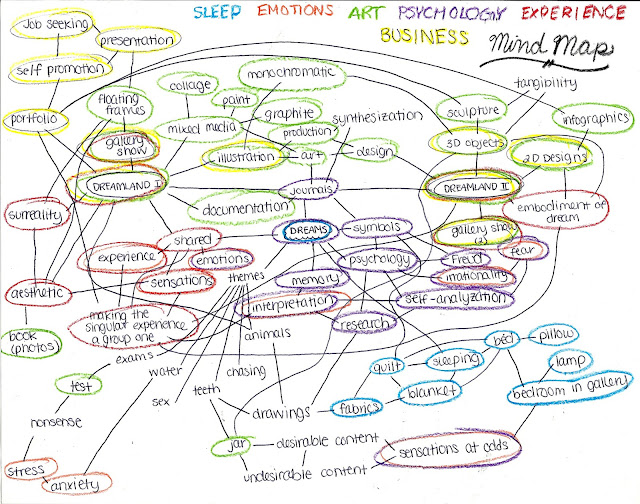 SLEEP EMOTIONS ART PSYCHOLOGY EXPERIENCE
BUSINESS
Mind Map
Job seeking
presentation
self promotion
portfolio
floating
frames
collage
paint
monochromatic
graphite
mixed media
production
synthesization
sculpture
tangibility
infographics
gallery
show
illustration
art
design
3D objects
2D Designs
DREAMLAND I
journals
DREAMLAND II
documentation
surreality
embodiment of
dream
shared
DREAMS
symbols
gallery show
(2)
experience
emotions
psychology
Freud
fear
sensations
themes
memory
irrationality
aesthetic
interpretation
self-analyzation
making the
singular experience
a group one
animals
research
book
(photos)
exams
water
chasing
quilt
sleeping
bed
pillow
lamp
test
sex
teeth
blanket
bedroom in gallery
nonsense
drawings
fabrics
jar
desirable content
sensations at odds
stress
anxiety
undesirable content